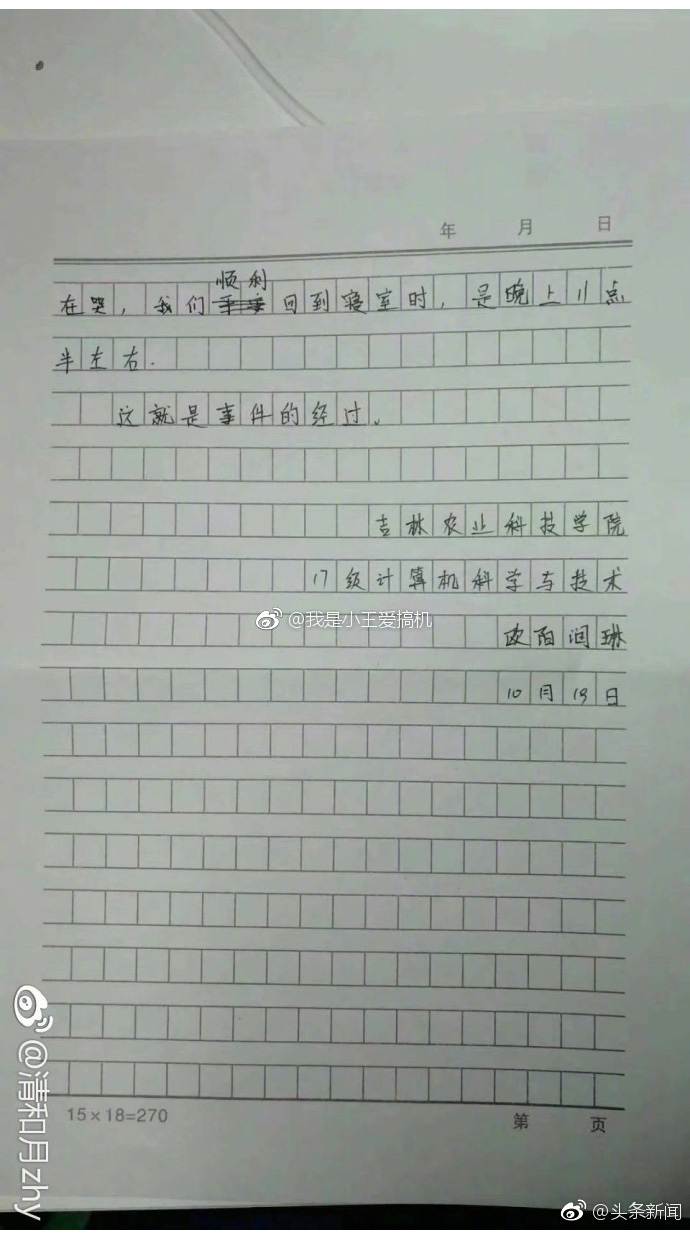 年 月 日
顺利
在哭，我们回到寝室时，是晚上11点
半左右.
这就是事件的经过。
吉林农业科技学院
17级计算机科学与技术
@我是小王爱搞机
欧阳润琳
10月19日
15×18=270
第 页
@清和月zhy
@头条新闻